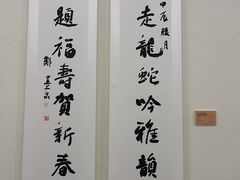 甲辰臘月
走龍蛇吟雅韻
題福壽賀新春